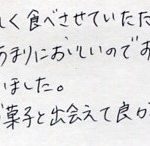 しく食べさせていただ
あまりにおいしいのでお
いました。
菓子と出会えて良か